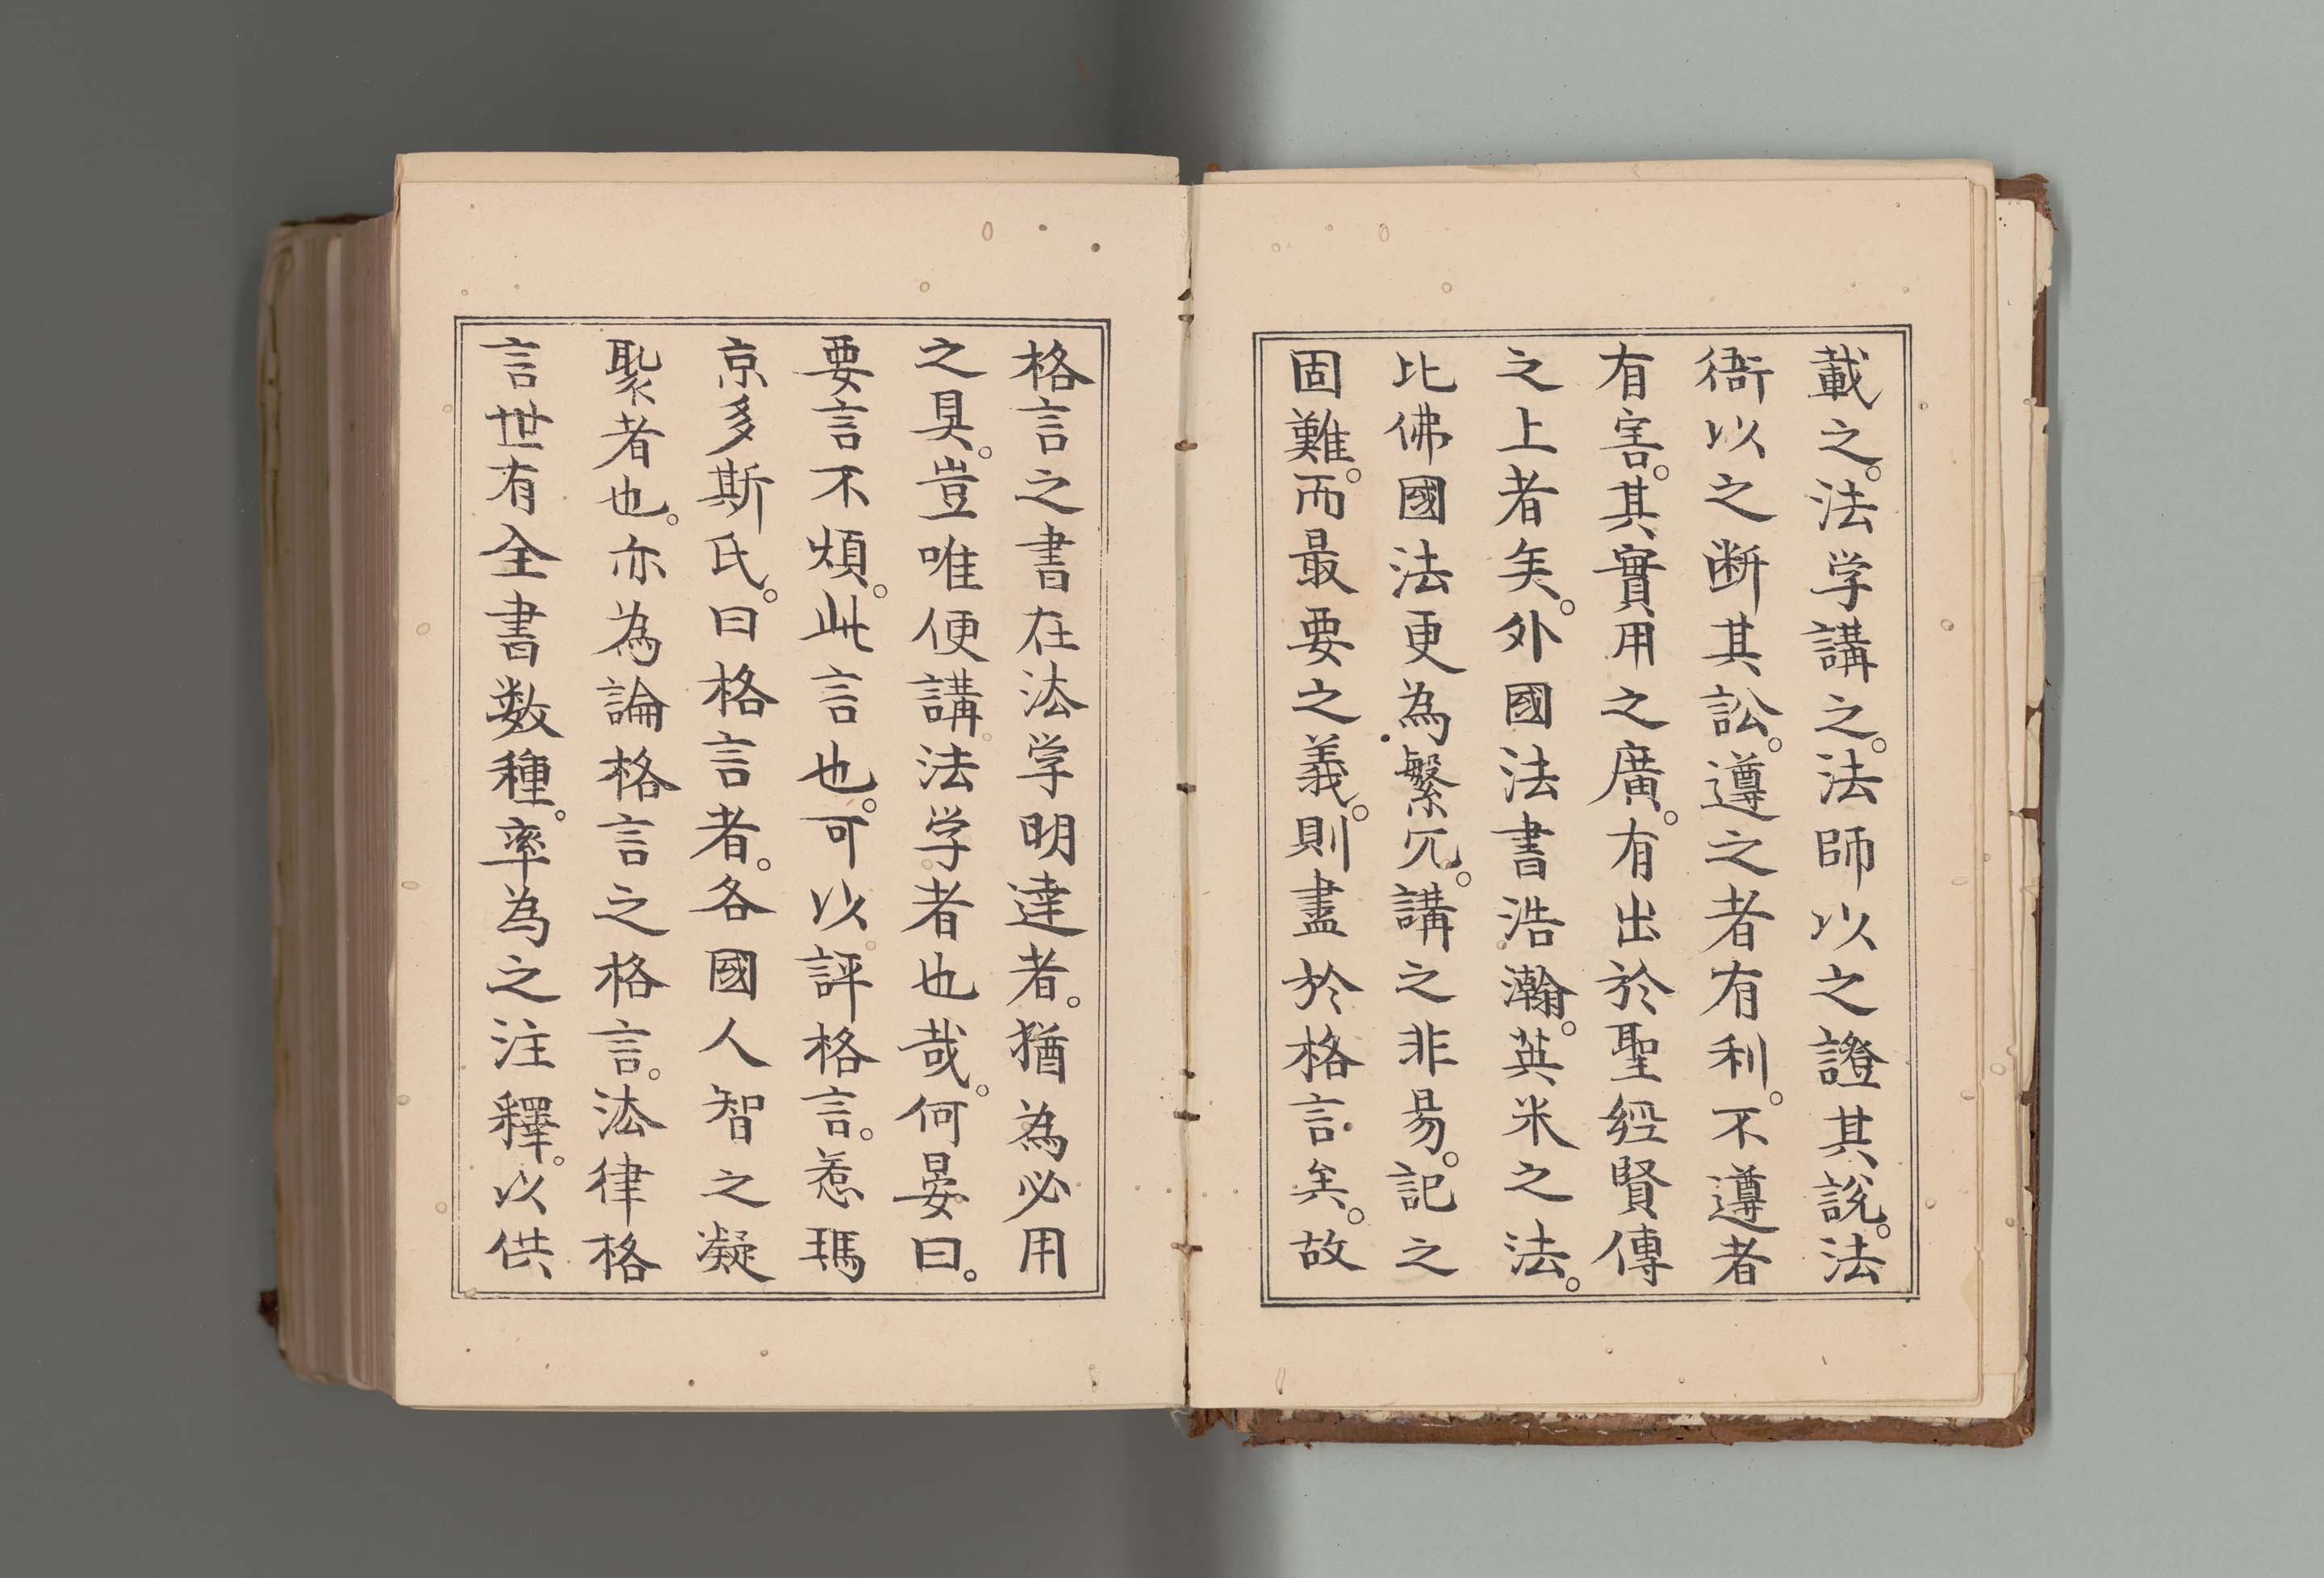 載之。法学講之。法師以之證其說。法
衙以之断其訟。遵之者有利。不遵者
有害。其實用之廣。有出於聖經賢傳
之上者矣。外國法書浩瀚。英米之法。
比佛國法更為繫冗。講之非易。記之
固難。而最要之義。則盡於格言矣。故
格言之書在法学明達者。猶為必用
之具。豈唯便講法学者也哉。何晏曰。
要言不煩。此言也。可以評格言。惹瑪
京多斯氏。曰格言者。各國人智之凝
聚者也。亦為論格言之格言。法律格
言世有全書数種。率為之注釋。以供